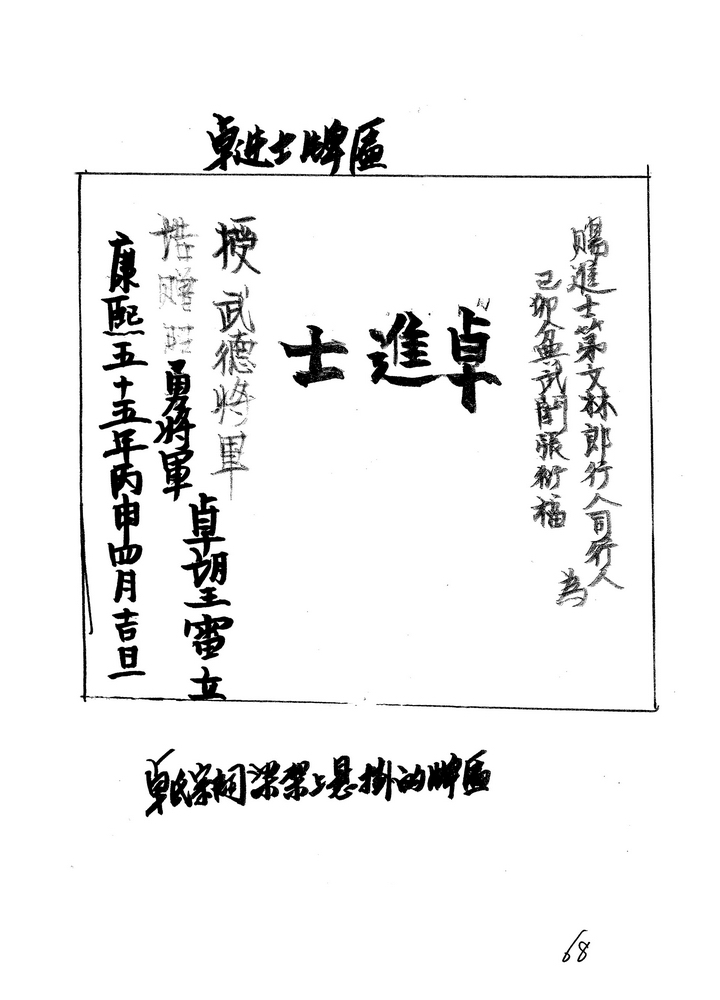 卓進士牌匾
賜進士第文林郎行人司行人
己卯盆武闈張衍福
為
卓進士
授武德將軍
誥贈昭勇將軍
卓望審立
康熙五十五年丙申四月吉旦
卓氏宗祠梁架上悬掛的牌匾
68